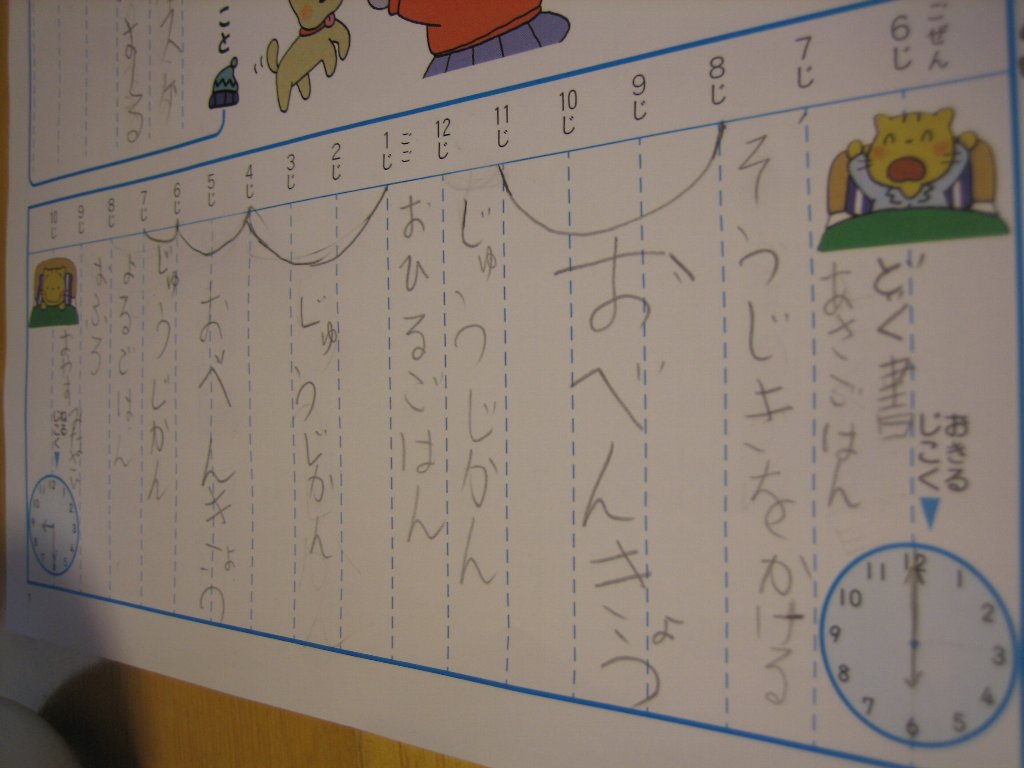 ごぜん
6じ
7じ
8じ
9じ
10じ
11じ
12じ
ごご
1じ
2じ
3じ
4じ
5じ
6じ
7じ
8じ
9じ
10じ
おきる
じこく
どく書
あさごはん
そうじきをかける
おべんきょう
じゅうじかん
おひるごはん
じゅうじかん
おべんきょう
じゅうじかん
よるごはん
おふろ
12
1
2
3
4
5
6
7
8
9
10
11
こと
する